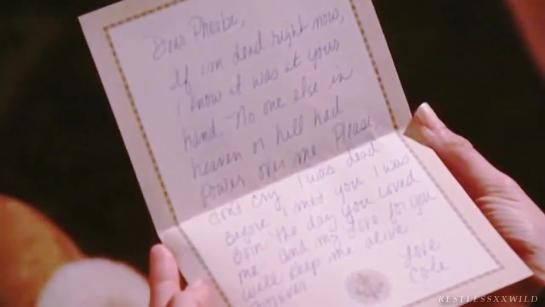 Dear Phoebe,
If im dead right now,
I know it was at your
hand. No one else in
heaven or hell had
power over me. Please
dont cry I was dead
before I met you I was
born the day you loved
me and my love for you
will keep me alive
forever
Love
Cole
RESTLESSXXWILD